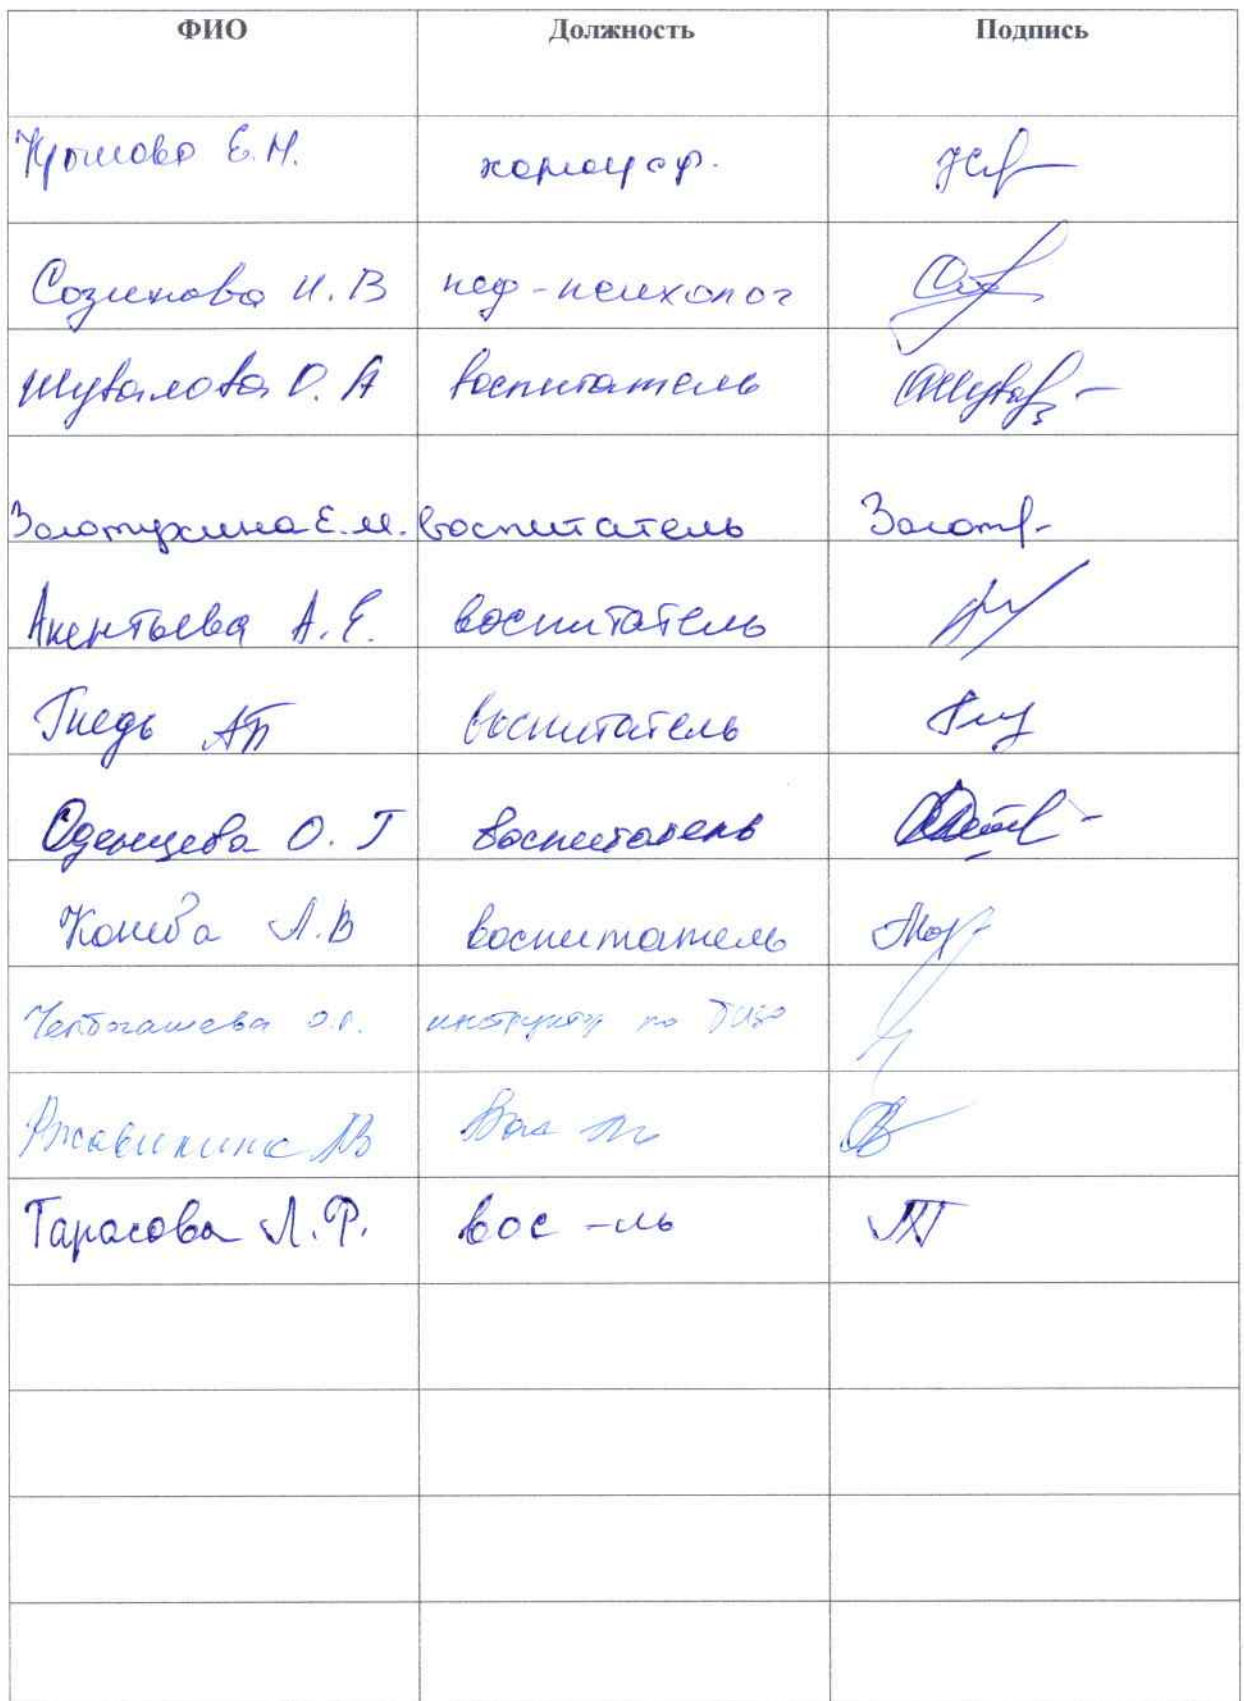 ФИО Должность Подпись
Е.Н.
Созинова И.В пед-психолог
Шувалова О.А воспитатель
Золотухина Е.М. воспитатель Золот
Акентьева А.Е. воспитатель
Гнедь АП воспитатель
Оденцева О.Г воспитатель
Конева Л.В воспитатель
Чепбогашева О.Г. инструктор по Физо
ЛВ
Тарасова Л.Р. вос-ль